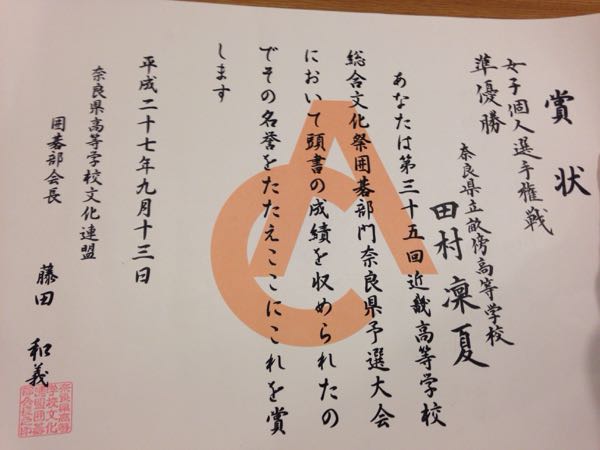 賞状
女子個人選手権戦
準優勝
奈良県立畝傍高等学校
田村凜夏
あなたは第三十五回近畿高等学校
総合文化祭囲碁部門奈良県予選大会
において頭書の成績を収められたの
でその名誉をたたえここにこれを賞
します
平成二十七年九月十三日
奈良県高等学校文化連盟
囲碁部会長 藤田 和義